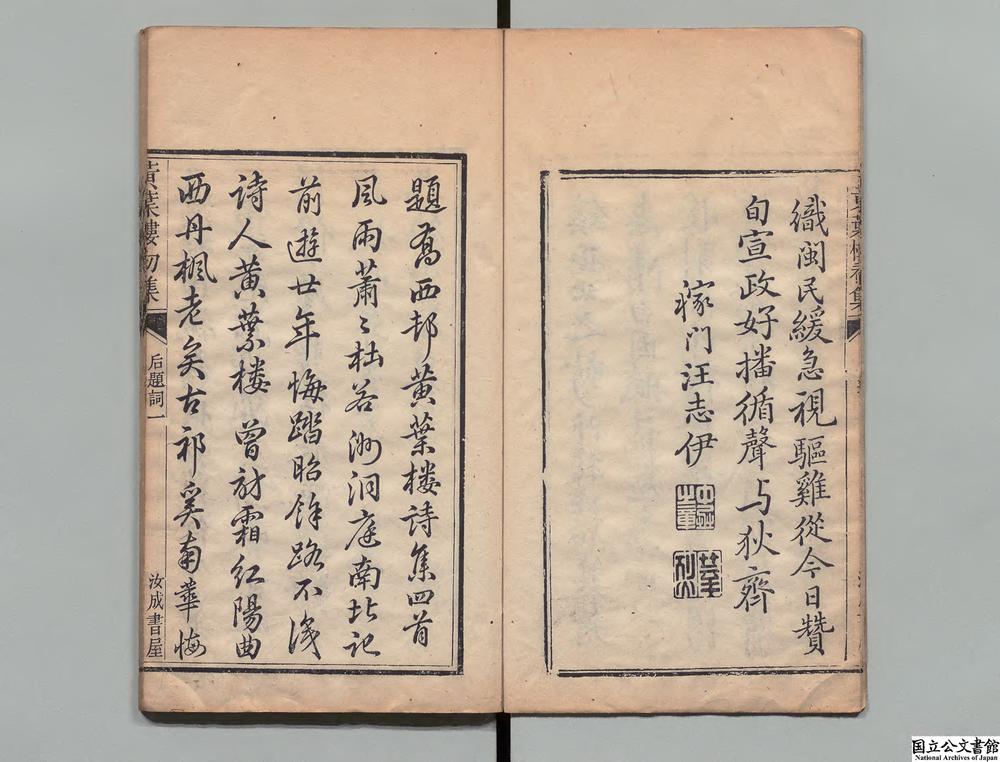 織閩民緩急視驅雞從今日贊
旬宣政好播循聲与狄齊
稼門汪志伊
題喬西邨黄葉楼詩集四首
風雨蕭〻杜若洲洞庭南北記
前遊廿年悔踏昭餘路不識
詩人黄葉楼 曾訪霜红陽曲
西丹楓老矣古祁奚南華悔
黄葉樓初集 后題詞一 汝成書屋
国立公文書館
National Archives of Japan